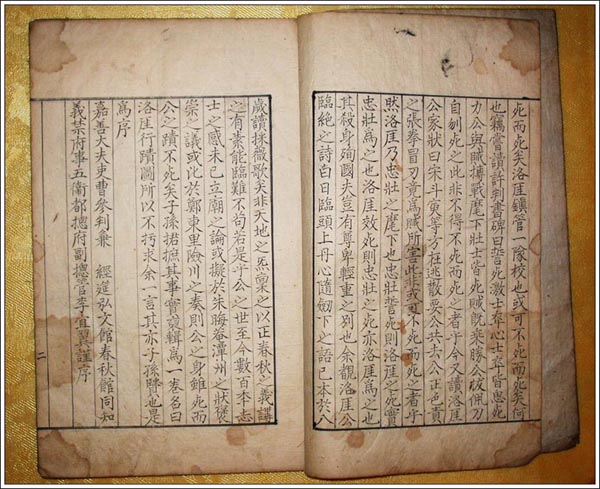 死而死矣洛厓鎮管一隊校也或可不死而死矣何
也竊嘗讀許判書碑曰誓死激士卒心士卒皆思死
力公與賊搏戰麾下壯士皆死賊旣乘勝公拔佩刀
自刎死之此非不得不死而死之者乎今又讀洛厓
公家狀曰宋斗寅等方在逃散要公共去公正色責
之張拳冒刃竟爲賊所害此非或可不死而死之者乎
然洛厓乃忠壯之麾下也忠壯誓死則洛厓之死實
忠壯爲之也洛厓效死則忠壯之死亦洛厓爲之也
其殺身殉國夫豈有尊卑輕重之別也余覩洛厓公
臨絶之詩白日臨頭上丹心隨劒下之語已本於八
歲讀採薇歌矣非天地之炁稟之以正春秋之義講
之有素能臨難不苟若是乎公之世至今數百年志
士之感未已立廟之論或擬於朱晦菴潭州之狀褒
崇之議或比於鄭東里險川之奏則公之身雖死而
公之蹟不死矣子孫摭其事實蒐輯爲一卷名曰
洛厓行蹟圖所以不朽求余一言其亦子孫賢也是
爲序
嘉善大夫吏曹參判兼 經筵弘文館春秋館同知
義禁府事五衛都摠府副摠管李宜翼謹序
二